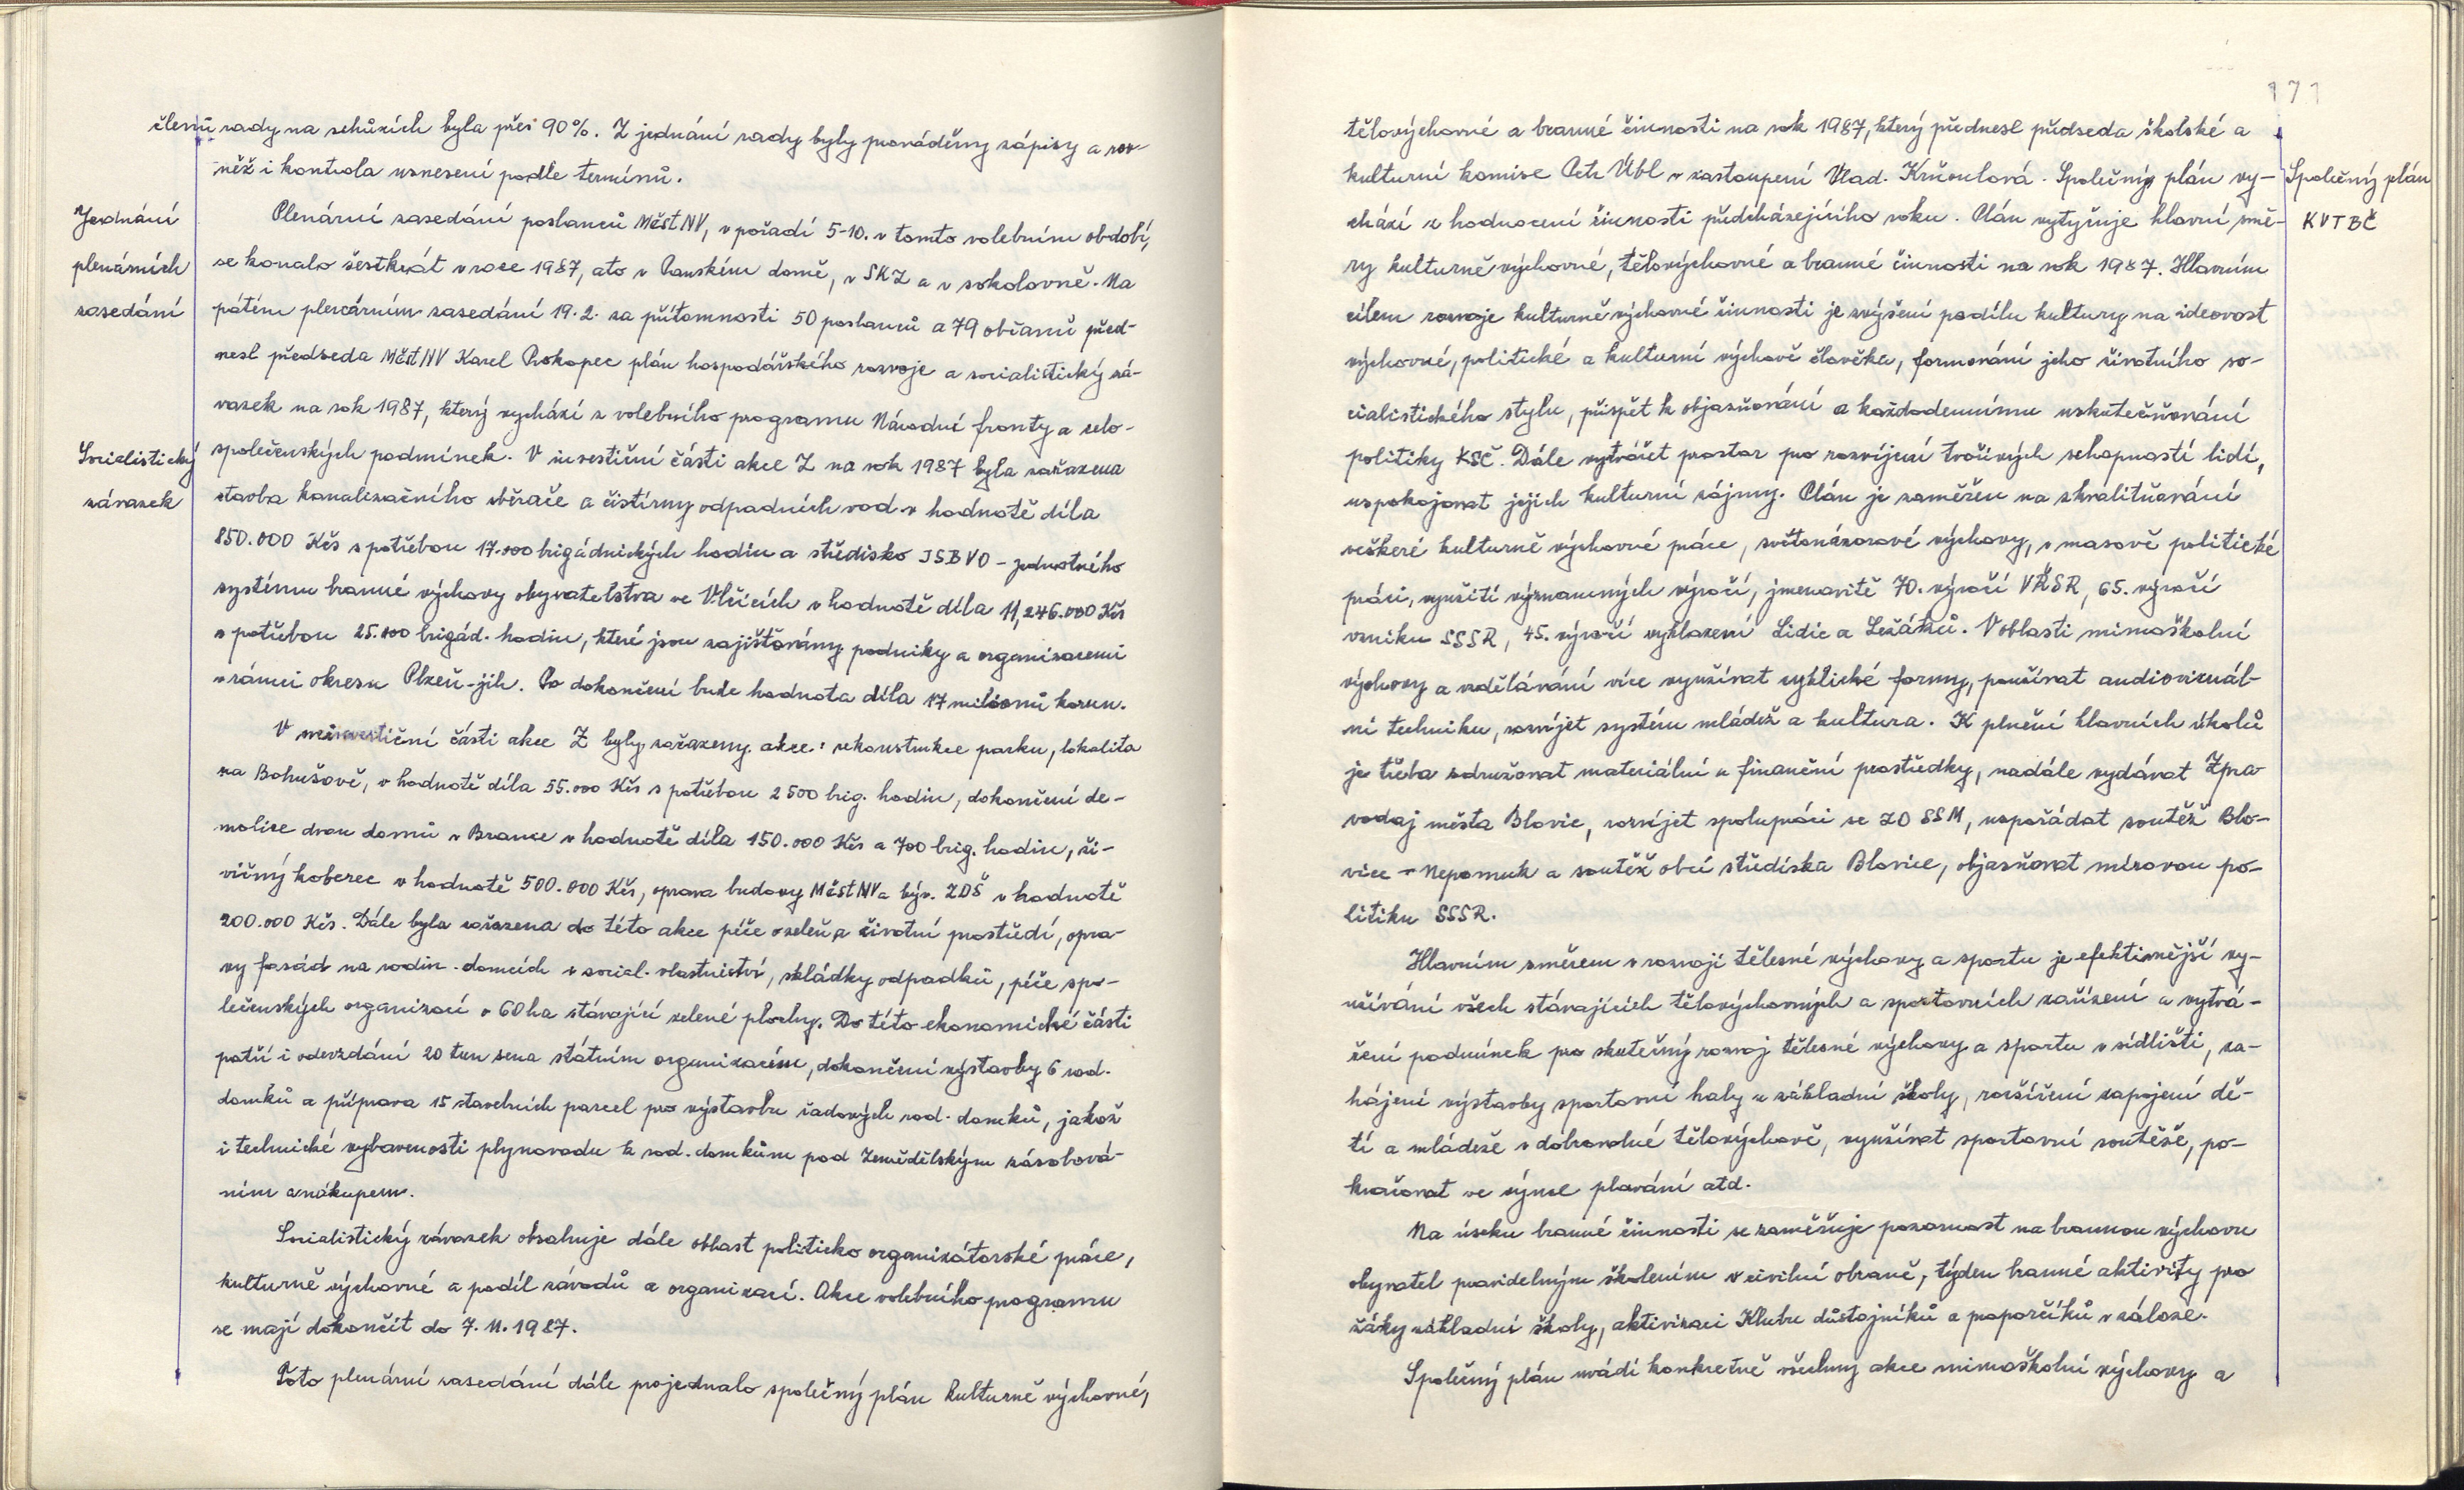 členů rady na schůzích byla přes 90%. Z jednání rady byly prováděny zápisy a rov-
něž i kontrola usnesení podle termínů.
Jednání
plenárních
zasedání
Plenární zasedání poslanců MěstNV, v pořadí 5-10. v tomto volebním období,
se konalo šestkrát v roce 1987, a to v Panském domě, v SKZ a v sokolovně. Na
pátém plenárním zasedání 19.2. za přítomnosti 50 poslanců a 79 občanů před-
nesl předseda MěstNV Karel Prokopec plán hospodářského rozvoje a socialistický zá-
vazek na rok 1987, který vychází z volebního programu Národní fronty a celo-
Socialistický
závazek
společenských podmínek. V investiční části akce Z na rok 1987 byla zařazena
stavba kanalizačního sběrače a čistírny odpadních vod v hodnotě díla
850.000 Kčs s potřebou 17.000 brigádnických hodin a středisko JSBVO - jednotného
systému branné výchovy obyvatelstva ve Vlčicích v hodnotě díla 11,246.000 Kčs
s potřebou 25.100 brigád. hodin, které jsou zajišťovány podniky a organizacemi
v rámci okresu Plzeň-jih. Po dokončení bude hodnota díla 17 miliónů korun.
V neinvestiční části akce Z byly zařazeny akce: rekonstrukce parku, lokalita
na Bohušově, v hodnotě díla 55.000 Kčs s potřebou 2500 brig. hodin, dokončení de-
molice dvou domů v Brance v hodnotě díla 150.000 Kčs a 700 brig. hodin, ži-
vičný koberec v hodnotě 500.000 Kčs, oprava budovy MěstNV a býv. ZDŠ v hodnotě
200.000 Kčs. Dále byla zařazena do této akce péče o zeleň a životní prostředí, opra-
vy fasád na rodin. domcích v social. vlastnictví, skládky odpadků, péče spo-
lečenských organizací o 60 ha stávající zelené plochy. Do této ekonomické části
patří i odevzdání 20 tun sena státním organizacím, dokončení výstavby 6 rod.
domků a příprava 15 stavebních parcel pro výstavbu řadových rod. domků, jakož
i technické vybavenosti plynovodu k rod. domkům pod Zemědělským zásobová-
ním a nákupem.
Socialistický závazek obsahuje dále oblast politicko organizátorské práce,
kulturně výchovné a podíl závodů a organizací. Akce volebního programu
se mají dokončit do 7.11.1987.
Toto plenární zasedání dále projednalo společný plán kulturně výchovné,
171
tělovýchovné a branné činnosti na rok 1987, který přednesl předseda školské a
kulturní komise Petr Úbl v zastoupení Vlad. Krňoulová. Společný plán vy-
Společný plán
KVTBČ
chází z hodnocení činnosti předcházejícího roku. Plán vytyčuje hlavní smě-
ry kulturně výchovné, tělovýchovné a branné činnosti na rok 1987. Hlavním
cílem rozvoje kulturně výchovné činnosti je zvýšení podílu kultury na ideovost
výchovné, politické a kulturní výchově člověka, formování jeho životního so-
cialistického stylu, přispět k objasňování a každodennímu uskutečňování
politiky KSČ. Dále vytvářet prostor pro rozvíjení tvořivých schopností lidí,
uspokojovat jejich kulturní zájmy. Plán je zaměřen na zkvalitňování
veškeré kulturně výchovné práce, světonázorové výchovy, v masově politické
práci, využití významných výročí, jmenovitě 70. výročí VŘSR, 65. výročí
vzniku SSSR, 45. výročí vyhlazení Lidic a Ležáků. V oblasti mimoškolní
výchovy a vzdělávání více využívat cyklické formy, používat audiovizuál-
ní techniku, rozvíjet systém mládež a kultura. K plnění hlavních úkolů
je třeba sdružovat materiální a finanční prostředky, nadále vydávat Zpra-
vodaj města Blovic, rozvíjet spolupráci se ZO SSM, uspořádat soutěž Blo-
vice - Nepomuk a soutěž obcí střediska Blovice, objasňovat mírovou po-
litiku SSSR.
Hlavním směrem v rozvoji tělesné výchovy a sportu je efektivnější vy-
užívání všech stávajících tělovýchovných a sportovních zařízení a vytvá-
ření podmínek pro skutečný rozvoj tělesné výchovy a sportu v sídlišti, za-
hájení výstavby sportovní haly u základní školy, rozšíření zapojení dě-
tí a mládeže v dobrovolné tělovýchově, využívat sportovní soutěže, po-
kračovat ve výuce plavání atd.
Na úseku branné činnosti se zaměřuje pozornost na brannou výchovu
obyvatel pravidelným školením v civilní obraně, týden branné aktivity pro
žáky základní školy, aktivizaci Klubu důstojníků a praporčíků v záloze.
Společný plán uvádí konkretně všechny akce mimoškolní výchovy a